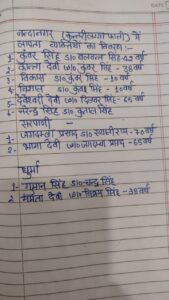 नन्दानगर (कुन्तरीलगा फाली) में
लापता व्यक्तियों का विवरण:-
1- कुंवर सिंह s/o बलवन्त सिंह-42 वर्ष
2- कान्ता देवी w/o कुंवर सिंह - 38 वर्ष
3- विकास s/o कुंवर सिंह - 10 वर्ष
4- विशाल s/o कुंवर सिंह - 10 वर्ष
5- देवेश्वरी देवी w/o दिलबर सिंह - 65 वर्ष
6- नरेन्द्र सिंह s/o कुताल सिंह
सरपाणी -
1- जगदम्बा प्रसाद s/o ख्यालीराम - 70 वर्ष
2- भागा देवी w/o जगदम्बा प्रसाद - 65 वर्ष
धुर्मा
1- गुमान सिंह s/o चन्द्र सिंह
2- ममता देवी w/o विक्रम सिंह - 38 वर्ष